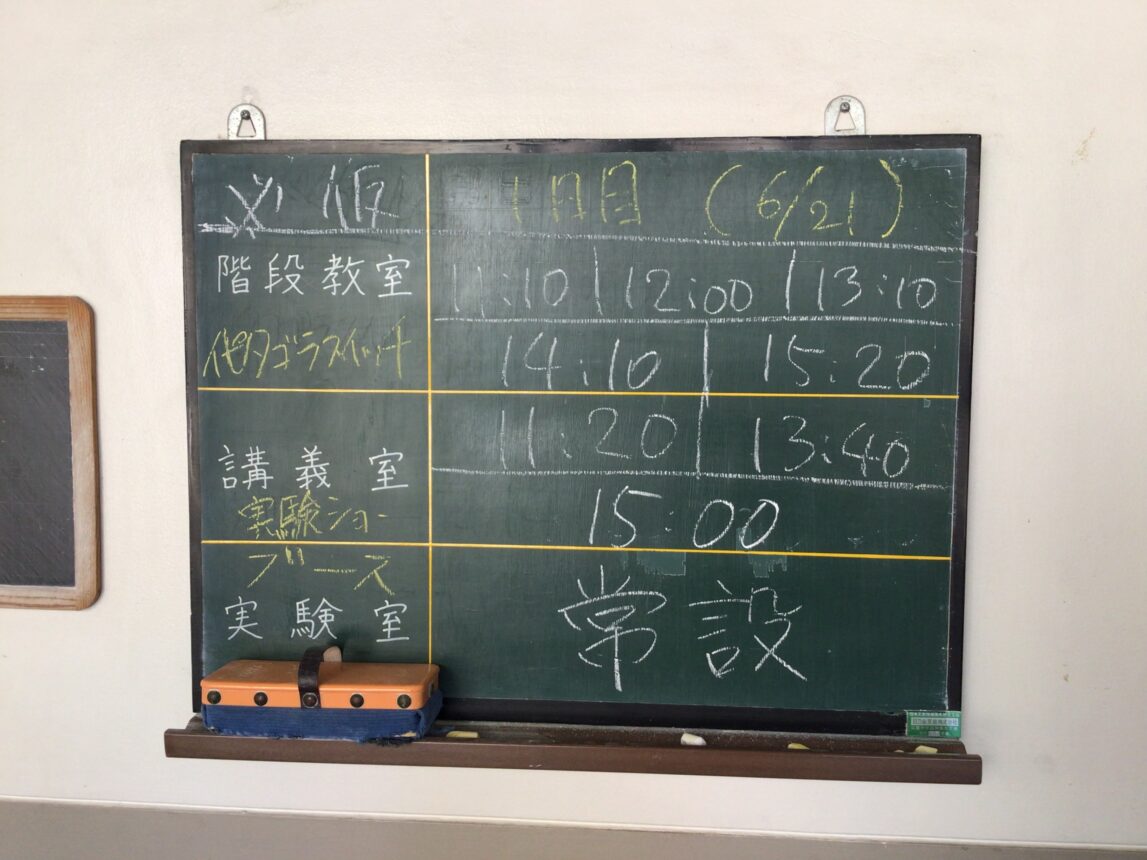 必 仮 1日目 (6/21)
階段教室 11:10 | 12:00 | 13:10
ピタゴラスイッチ 14:10 | 15:20
11:20 | 13:40
講義室
実験ショー 15:00
ブース
実験室 常設